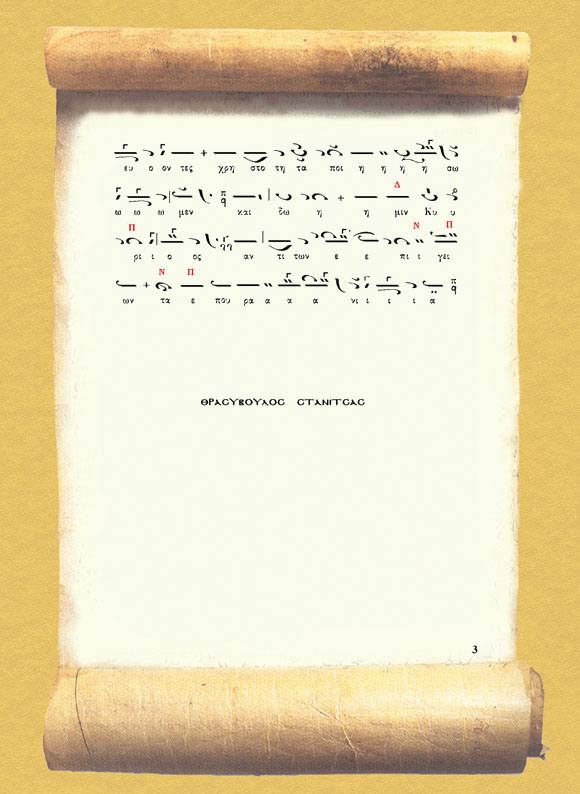 ευ ο ον τες χρη στο τη τα ποι η η η η σω
Δ
ω ω ω μεν και δω η η μιν Κυ υ
Π Ν Π
ρι ι ο ος αν τι των ε ε πι ι γει
Ν Π
ων τα ε που ρα α α α νι ι ι ι α
ΘΡΑСΥΒΟΥΛΟС СΤΑΝΙΤСΑС
3